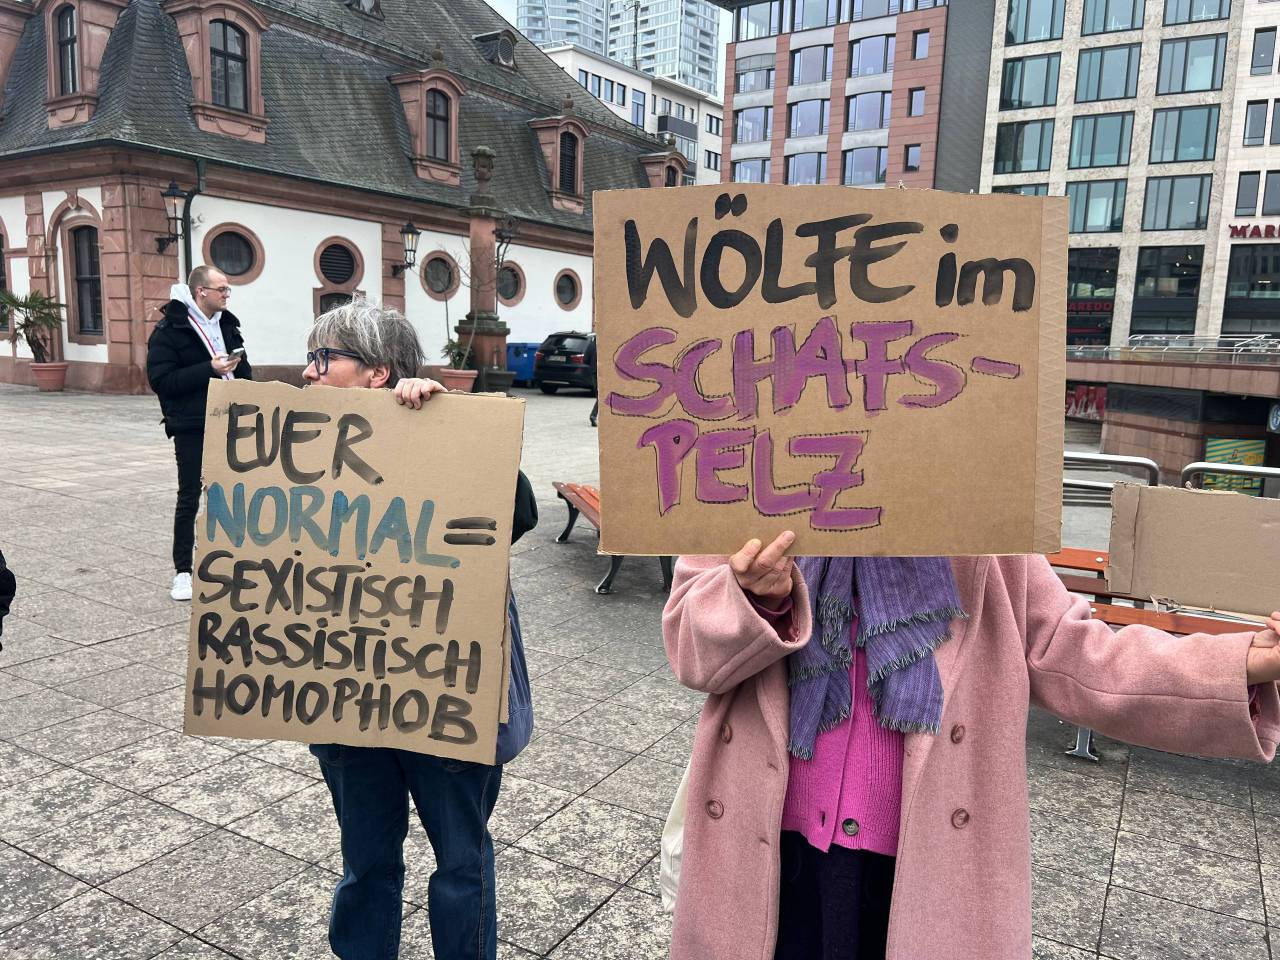 EUER
NORMAL=
SEXISTISCH
RASSISTISCH
HOMOPHOB
WÖLFE im
SCHAFS-
PELZ
MAREDO